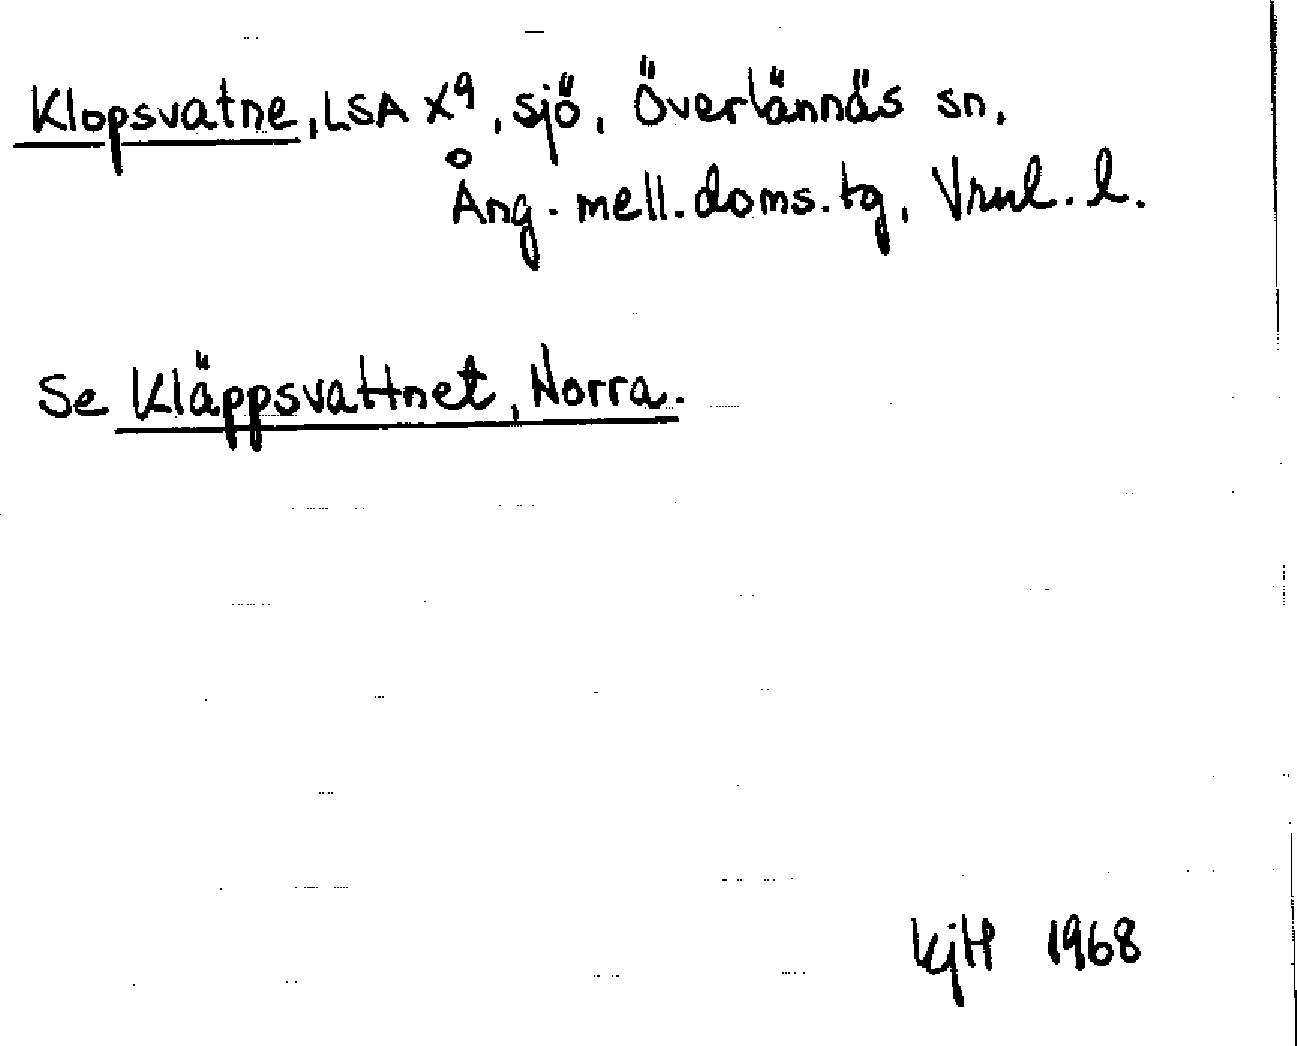 Klopsvatne, LSA X9, sjö, Överlännäs sn,
Ång. mell. doms. tg, Vrnl. l.
Se Kläppsvattnet, Norra.
KjH 1968